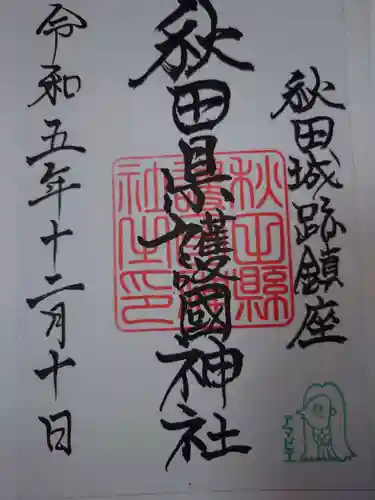 秋田城跡鎮座
秋田県護國神社
令和五年十二月十日
秋田縣護國神社之印
アマビエ